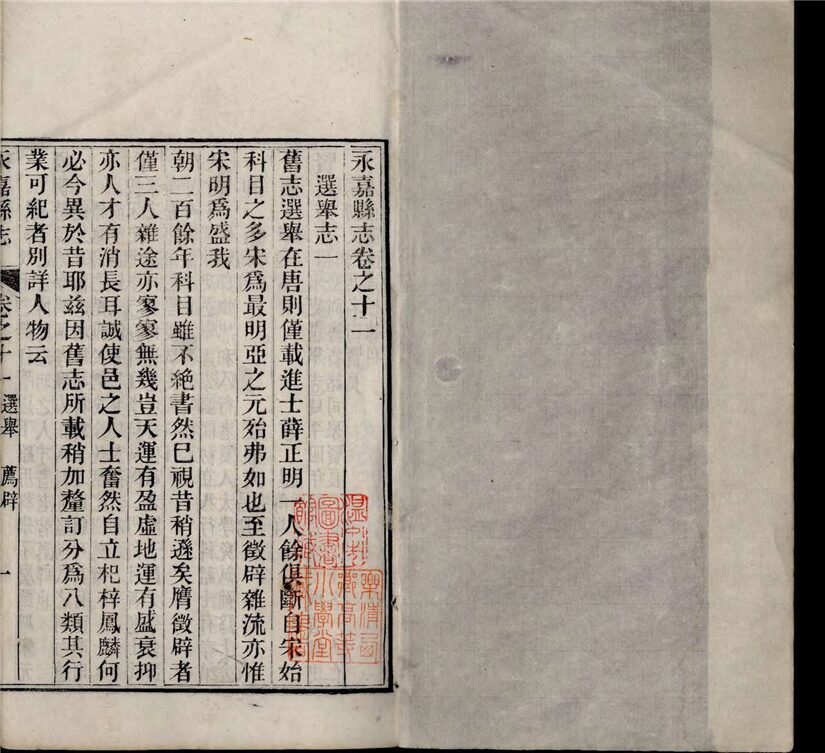 永嘉縣志卷之十一
選舉志一
舊志選舉在唐則僅載進士薛正明一人餘俱斷自宋始
科目之多宋爲最明亞之元殆弗如也至徵辟雜流亦惟
宋明爲盛我
朝二百餘年科目雖不絕書然已視昔稍遜矣膺徵辟者
僅三人雜途亦寥寥無幾豈天運有盈虛地運有盛衰抑
亦人才有消長耳誠使邑之人士奮然自立杞梓鳳麟何
必今異於昔耶茲因舊志所載稍加釐訂分爲八類其行
業可紀者別詳人物云
永嘉縣志 卷之十一 選舉 薦辟 一
圖書
高等
小學堂